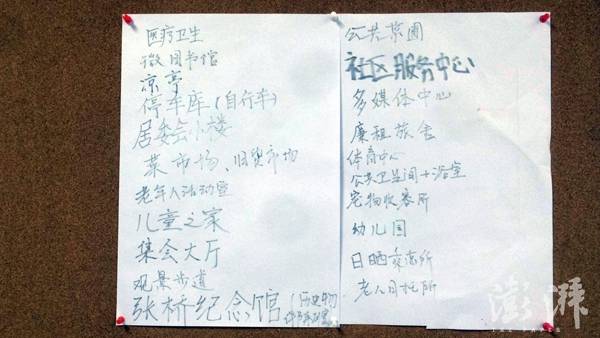 医疗卫生
微图书馆
凉亭
停车库(自行车)
居委会小楼
菜市场、旧货市场
老年人活动室
儿童之家
集会大厅
观景步道
张桥纪念馆(历史
公共菜园
社区服务中心
多媒体中心
廉租旅舍
体育中心
公共卫生间+浴室
宠物收容所
幼儿园
日晒交流所
老人日托所
澎湃